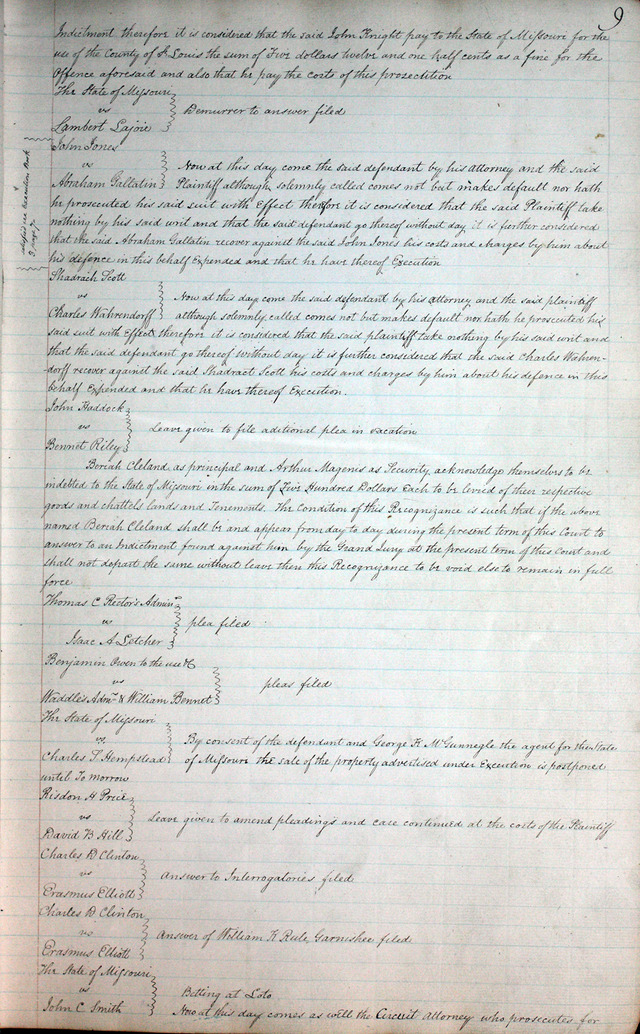 9
Indictment therefore it is considered that the said John Knight pay to the State of Missouri for the
use of the County of St Louis the sum of Five dollars twelve and one half cents as a fine for the
Offence aforesaid and also that he pay the costs of this prosecution
The State of Missouri
vs Demurrer to answer filed
Lambert Lajoie
John Jones
vs Now at this day come the said defendant by his Attorney and the said
Abraham Gallatin Plaintiff although solemnly called comes not but makes default nor hath
he prosecuted his said suit with Effect therefore it is considered that the said Plaintiff take
nothing by his said writ and that the said defendant go thereof without day it is further considered
that the said Abraham Gallatin recover against the said John Jones his costs and charges by him about
his defence in this behalf Expended and that he have thereof Execution
Shadrach Scott
vs Now at this day come the said defendant by his attorney and the said plaintiff
Charles Wahrendorff although solemnly called comes not but makes default nor hath he prosecuted his
said suit with Effect therefore it is considered that the said plaintiff take nothing by his said writ and
that the said defendant go thereof without day it is further considered that the said Charles Wahren-
dorff recover against the said Shadract Scott his costs and charges by him about his defence in this
behalf Expended and that he have thereof Execution.
John Haddock
vs Leave given to file aditional plea in vacation
Bennet Riley
Beriah Cleland as principal and Arthur Magenis as Security, acknowledge themselves to be
indebted to the State of Missouri in the sum of Five Hundred Dollars Each to be levied of their respective
goods and chattels lands and Tenements. The Condition of this Recognizance is such that if the above
named Beriah Cleland shall be and appear from day to day during the present term of this Court to
answer to an Indictment found against him by the Grand Jury at the present term of this Court and
shall not depart the same without leave then this Recognizance to be void else to remain in full
force
Thomas C Rector's Admin
vs plea filed
Isaac A Letcher
Benjamin Owen to the use &c
vs pleas filed
Waddle's Adm & William Bennet
The State of Missouri
vs. By consent of the defendant and George K McGunnegle the agent for the State
Charles S Hempstead of Missouri the sale of the property advertised under Execution is postponed
until To morrow
Risdon H Price
vs Leave given to amend pleadings and case continued at the costs of the Plaintiff
David B Hill
Charles D Clinton
vs Answer to Interrogatories filed
Erasmus Elliott
Charles D Clinton
vs Answer of William K Rule, Garnishee filed
Erasmus Elliott
The State of Missouri
vs Betting at Loto
John C Smith Now at this day comes as well the Circuit Attorney who prosecutes for